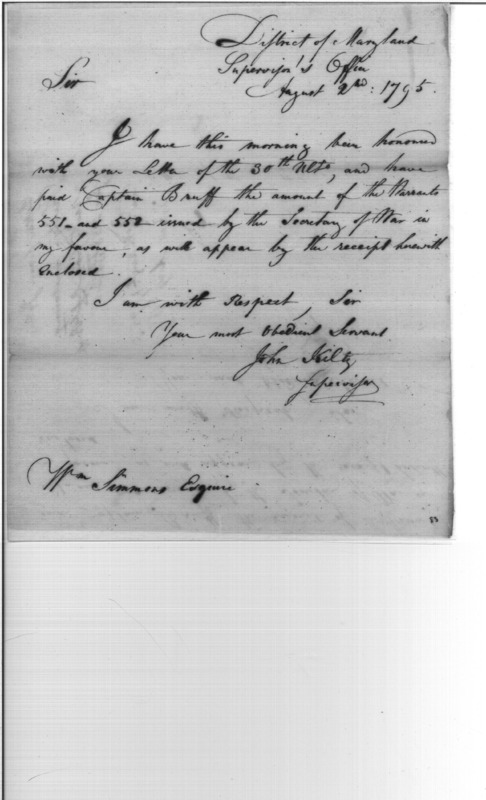 District of Maryland
Supervisor's Office
Sir August 2nd: 1795.
I have this morning been honoured
with your Letter of the 30th Ulto, and have
paid Captain Bruff the amount of the Warrants
551 and 552 issued by the Secretary of War in
my favour, as will appear by the receipt herewith
enclosed.
I am with Respect, Sir
Your most Obedient Servant
John Kilty
Supervisor
Wm Simmons Esquire
53